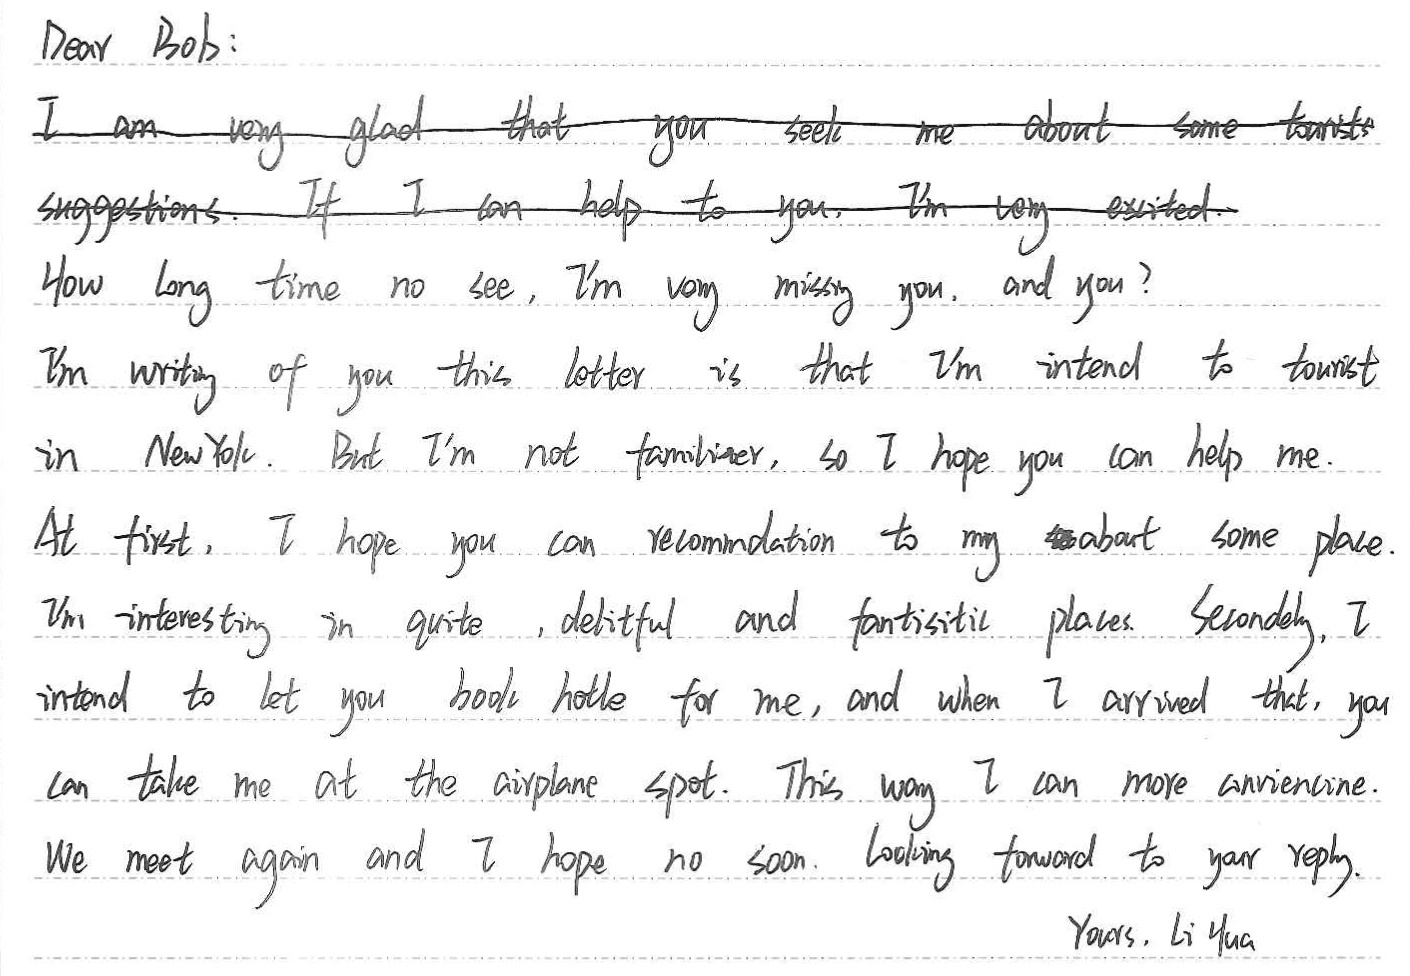 Dear Bob:
I am very glad that you seek me about some tourists
suggestions. If I can help to you. I'm very excited.
How long time no see, I'm very missing you. and you?
I'm writing of you this letter is that I'm intend to tourist
in New Yolk. But I'm not familizer, so I hope you can help me.
At first, I hope you can recommdation to my about some place.
I'm interesting in quite , delitful and fantisitic places. Secondely, I
intend to let you book hotle for me, and when I arrived that, you
can take me at the airplane spot. This way I can more conviencine.
We meet again and I hope no soon. Looking forword to your reply.
Yours, Li Hua